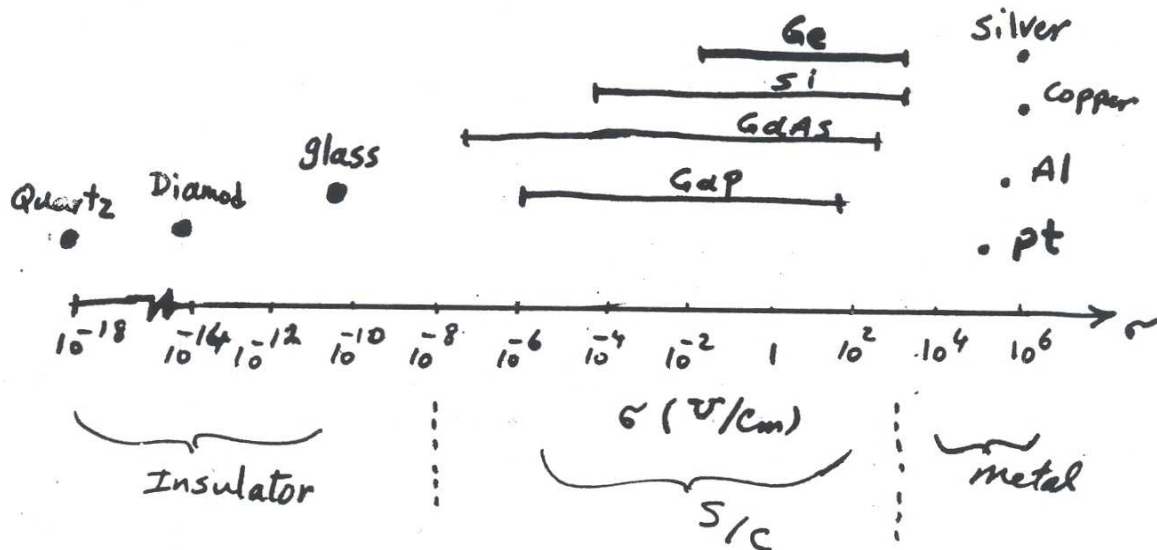 Ge
silver
Si
Copper
GaAs
glass
Al
Diamod
GaP
Quartz
pt
10⁻¹⁸ 10⁻¹⁴ 10⁻¹² 10⁻¹⁰ 10⁻⁸ 10⁻⁶ 10⁻⁴ 10⁻² 1 10² 10⁴ 10⁶ σ
σ (℧/cm)
Insulator
S/C
metal